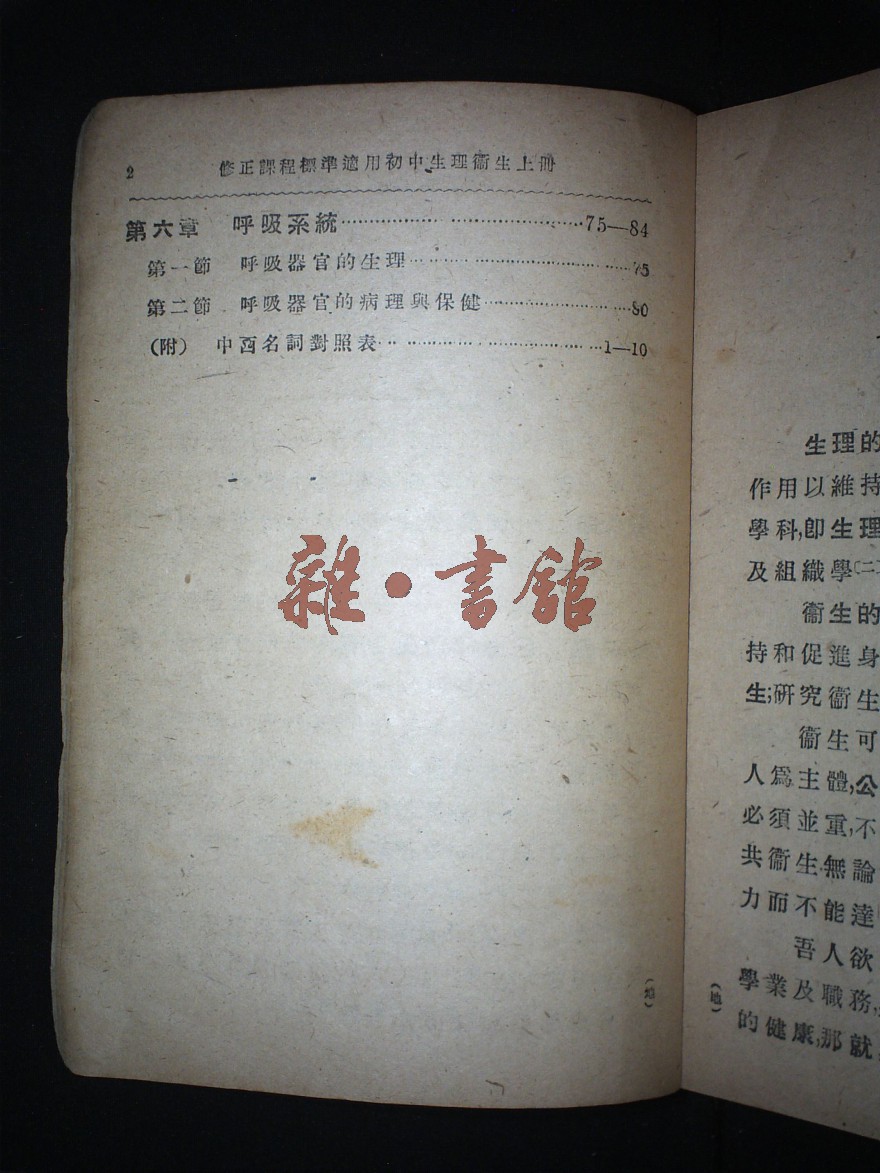 2
修正課程標準適用初中生理衞生上冊
第六章 呼吸系統……………………………75—84
第一節 呼吸器官的生理……………………………75
第二節 呼吸器官的病理與保健……………………80
(附) 中西名詞對照表……………………………1—10
雜·書館
生理的
作用以維持
學科,卽生理
及組織學(二
衞生的
持和促進身
生;研究衞生
衞生可
人爲主體,公
必須並重,不
共衞生無論
力而不能達
吾人欲
學業及職務,
的健康,那就
(地)